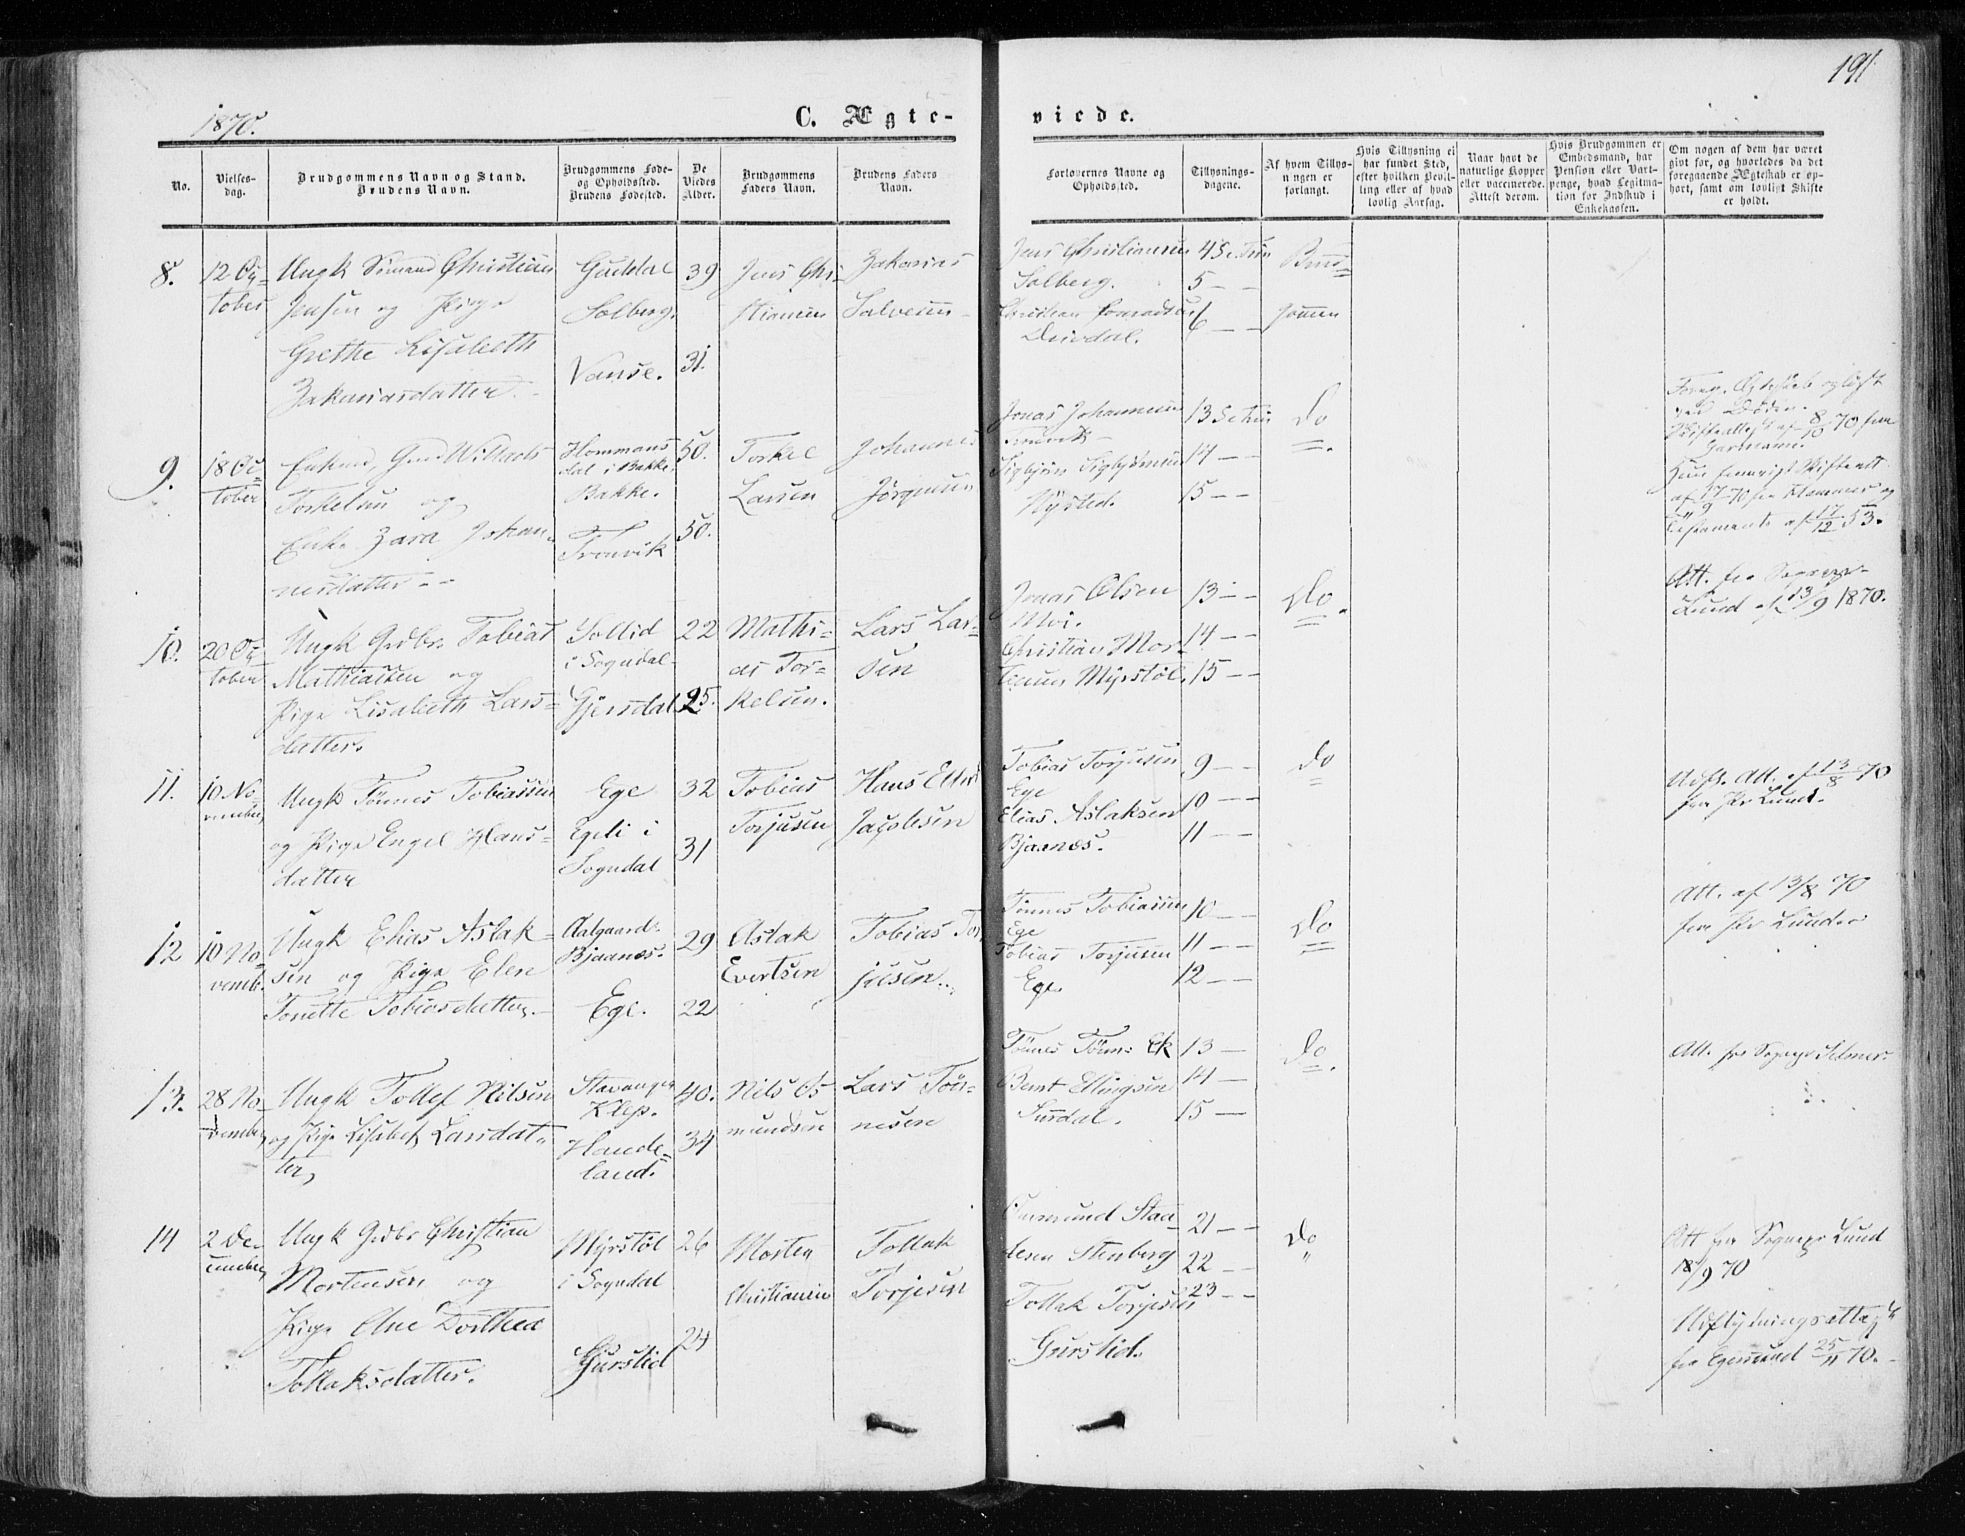 191
1870.
C. Ægte-
viede.
No.
Vielses-
dag.
Brudgommens Navn og Stand.
Brudens Navn.
Brudgommens Føde-
og Opholdssted.
Brudens Fødested.
De
Viedes
Alder.
Brudgommens
Faders Navn.
Brudens Faders
Navn.
Forlovernes Navne og
Opholdssted.
Tillysnings-
dagene.
Af hvem Tillys-
ningen er
forlangt.
Hvis Tillysning ei
har fundet Sted,
efter hvilken Bevil-
ling eller af hvad
lovlig Aarsag.
Naar havt de
naturlige Kopper
eller vaccinerede.
Attest derom.
Hvis Brudgommen er
Embedsmand, har
Pension eller Vart-
penge, hvad Legitima-
tion for Indskud i
Enkekassen.
Om nogen af dem har været
givt før, og hvorledes da det
foregaaende Ægteskab er op-
hørt, samt om lovligt Skifte
er holdt.
8.
12 Oc-
tober
Ungk Christian
Jensen og Pige
Grethe Lisabeth
Zakariasdatter
Guddal
Solberg.
Vanse.
39
31.
Jens Chri-
stiansen
Zakarias
Salvesen
Jens Christiansen
Solberg.
Christian
4
5 - -
6 - -
9.
18 Oc
tober
Enkem.
Torkelsen og
Enke Zara Johan-
nesdatter - -
Hommans
dal i Bakke.
Bakke.
Tronvik
50.
50.
Torkel
Larsen
Johannes
Jørgensen
Jonas Johannesen
Tronvik
Sigbjørn Sigbjørnsen
Nysted.
13
14 - -
15 - -
Do
af 8/10 70 fra
af 17/9 70 fra
Testamente af 17/12 53.
10.
20 Oc
tober
Ungk Grdbr. Tobias
Mathiassen og
Pige Lisabeth Lars-
datter.
Sollid
i Sogndal
Gjersdal
22
25.
Mathi-
as Tor-
kelsen.
Lars Lar-
sen
Jonas Olsen
Moi.
Christian Mor-
tensen Myrstøl.
13 - -
14 - -
15 - -
Do.
Att. fra Sognepr.
Lund af 13/9 1870.
11.
10 No
vember
Ungk Tønnes Tobiassen
og Pige Engel Hans-
datter
Ege
Egeli i
Sogndal
32
31
Tobias
Torjusen
Hans
Jacobsen
Tobias Torjusen
Ege
Elias Aslaksen
Bjaanæs.
9 - -
10 - -
11 - -
Do
Att. af 13/8 70
fra Pr Lund.
12
10 No
vemb.
Ungk Elias Aslak-
sen og Pige Elen
Tonette Tobiasdatter.
Aalgaard
Bjaanæs.
Ege.
29
22
Aslak
Evertsen
Tobias Tor
jusen
Tønnes Tobiassen
Ege
Tobias Torjusen
Ege.
10 - -
11 - -
12 - -
Do
Att. af 13/8 70
fra Pr Lund
13.
28 No
vember
Ungk Tollef Nilsen
og Pige Lisabet Larsdat-
ter,
Stavanger
Klep.
Haude-
land.
40.
34
Nils Os
mundsen
Lars Tøn-
nesen
Tønnes Tønns Ek
Bernt Ellingsen
Surdal.
13 -
14 -
15 -
Do.
Att. fra Sognepr Selmer
14
2 De-
cember
Ungk Grdbr Christian
Mortensen og
Pige Ane Dorthea
Tollaksdatter.
Myrstøl
i Sogndal
Gurstid
26
24
Morten
Christiansen
Tollak
Torjesen
Stenberg
Tollak Torjesen
Gurstid.
21 - -
22 - -
23 - -
Do
"
Att fra Sognepr Lund
18/9 70
Udflytningsattest
fra Egersund 25/11 70.